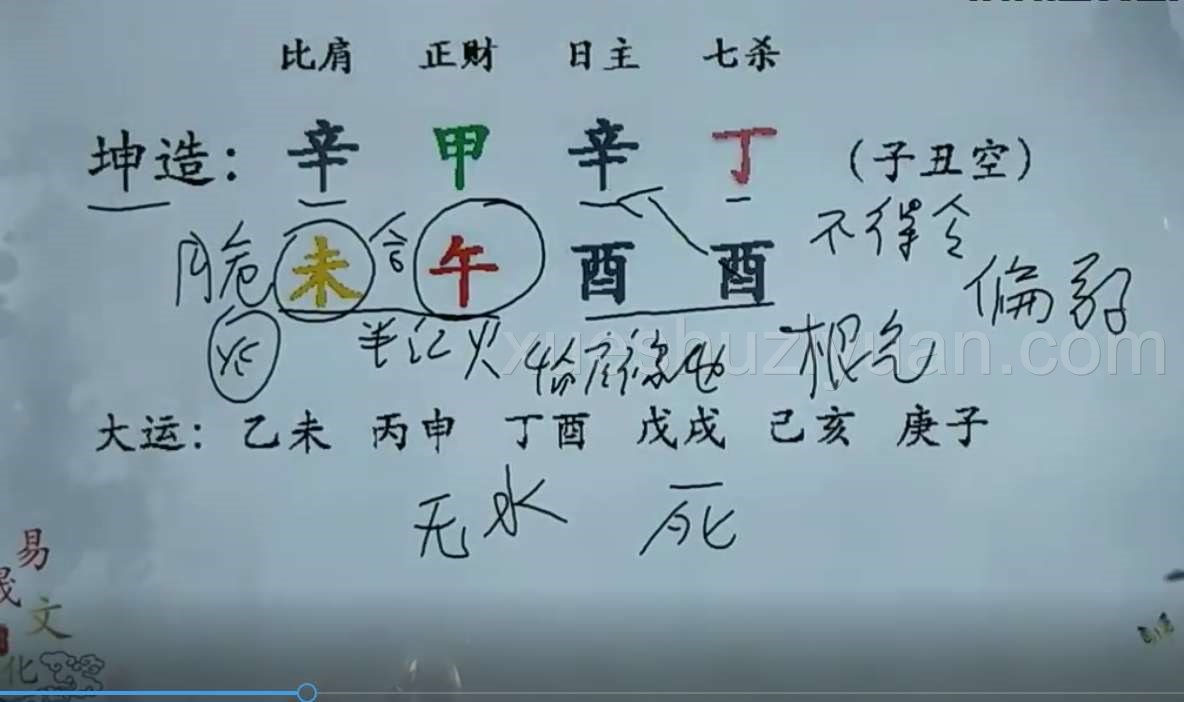 比肩 正财 日主 七杀
坤造： 辛 甲 辛 丁 （子丑空）
不得令
未 合 午 酉 酉
偏弱
半 火 根气
xueshuziyuan.com
大运： 乙未 丙申 丁酉 戊戌 己亥 庚子
无水 死
易
文
化